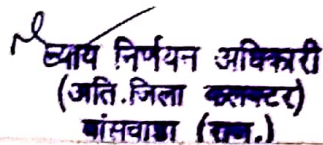 न्याय निर्णयन अधिकारी
(अति.जिला कलक्टर)
बांसवाडा (राज.)